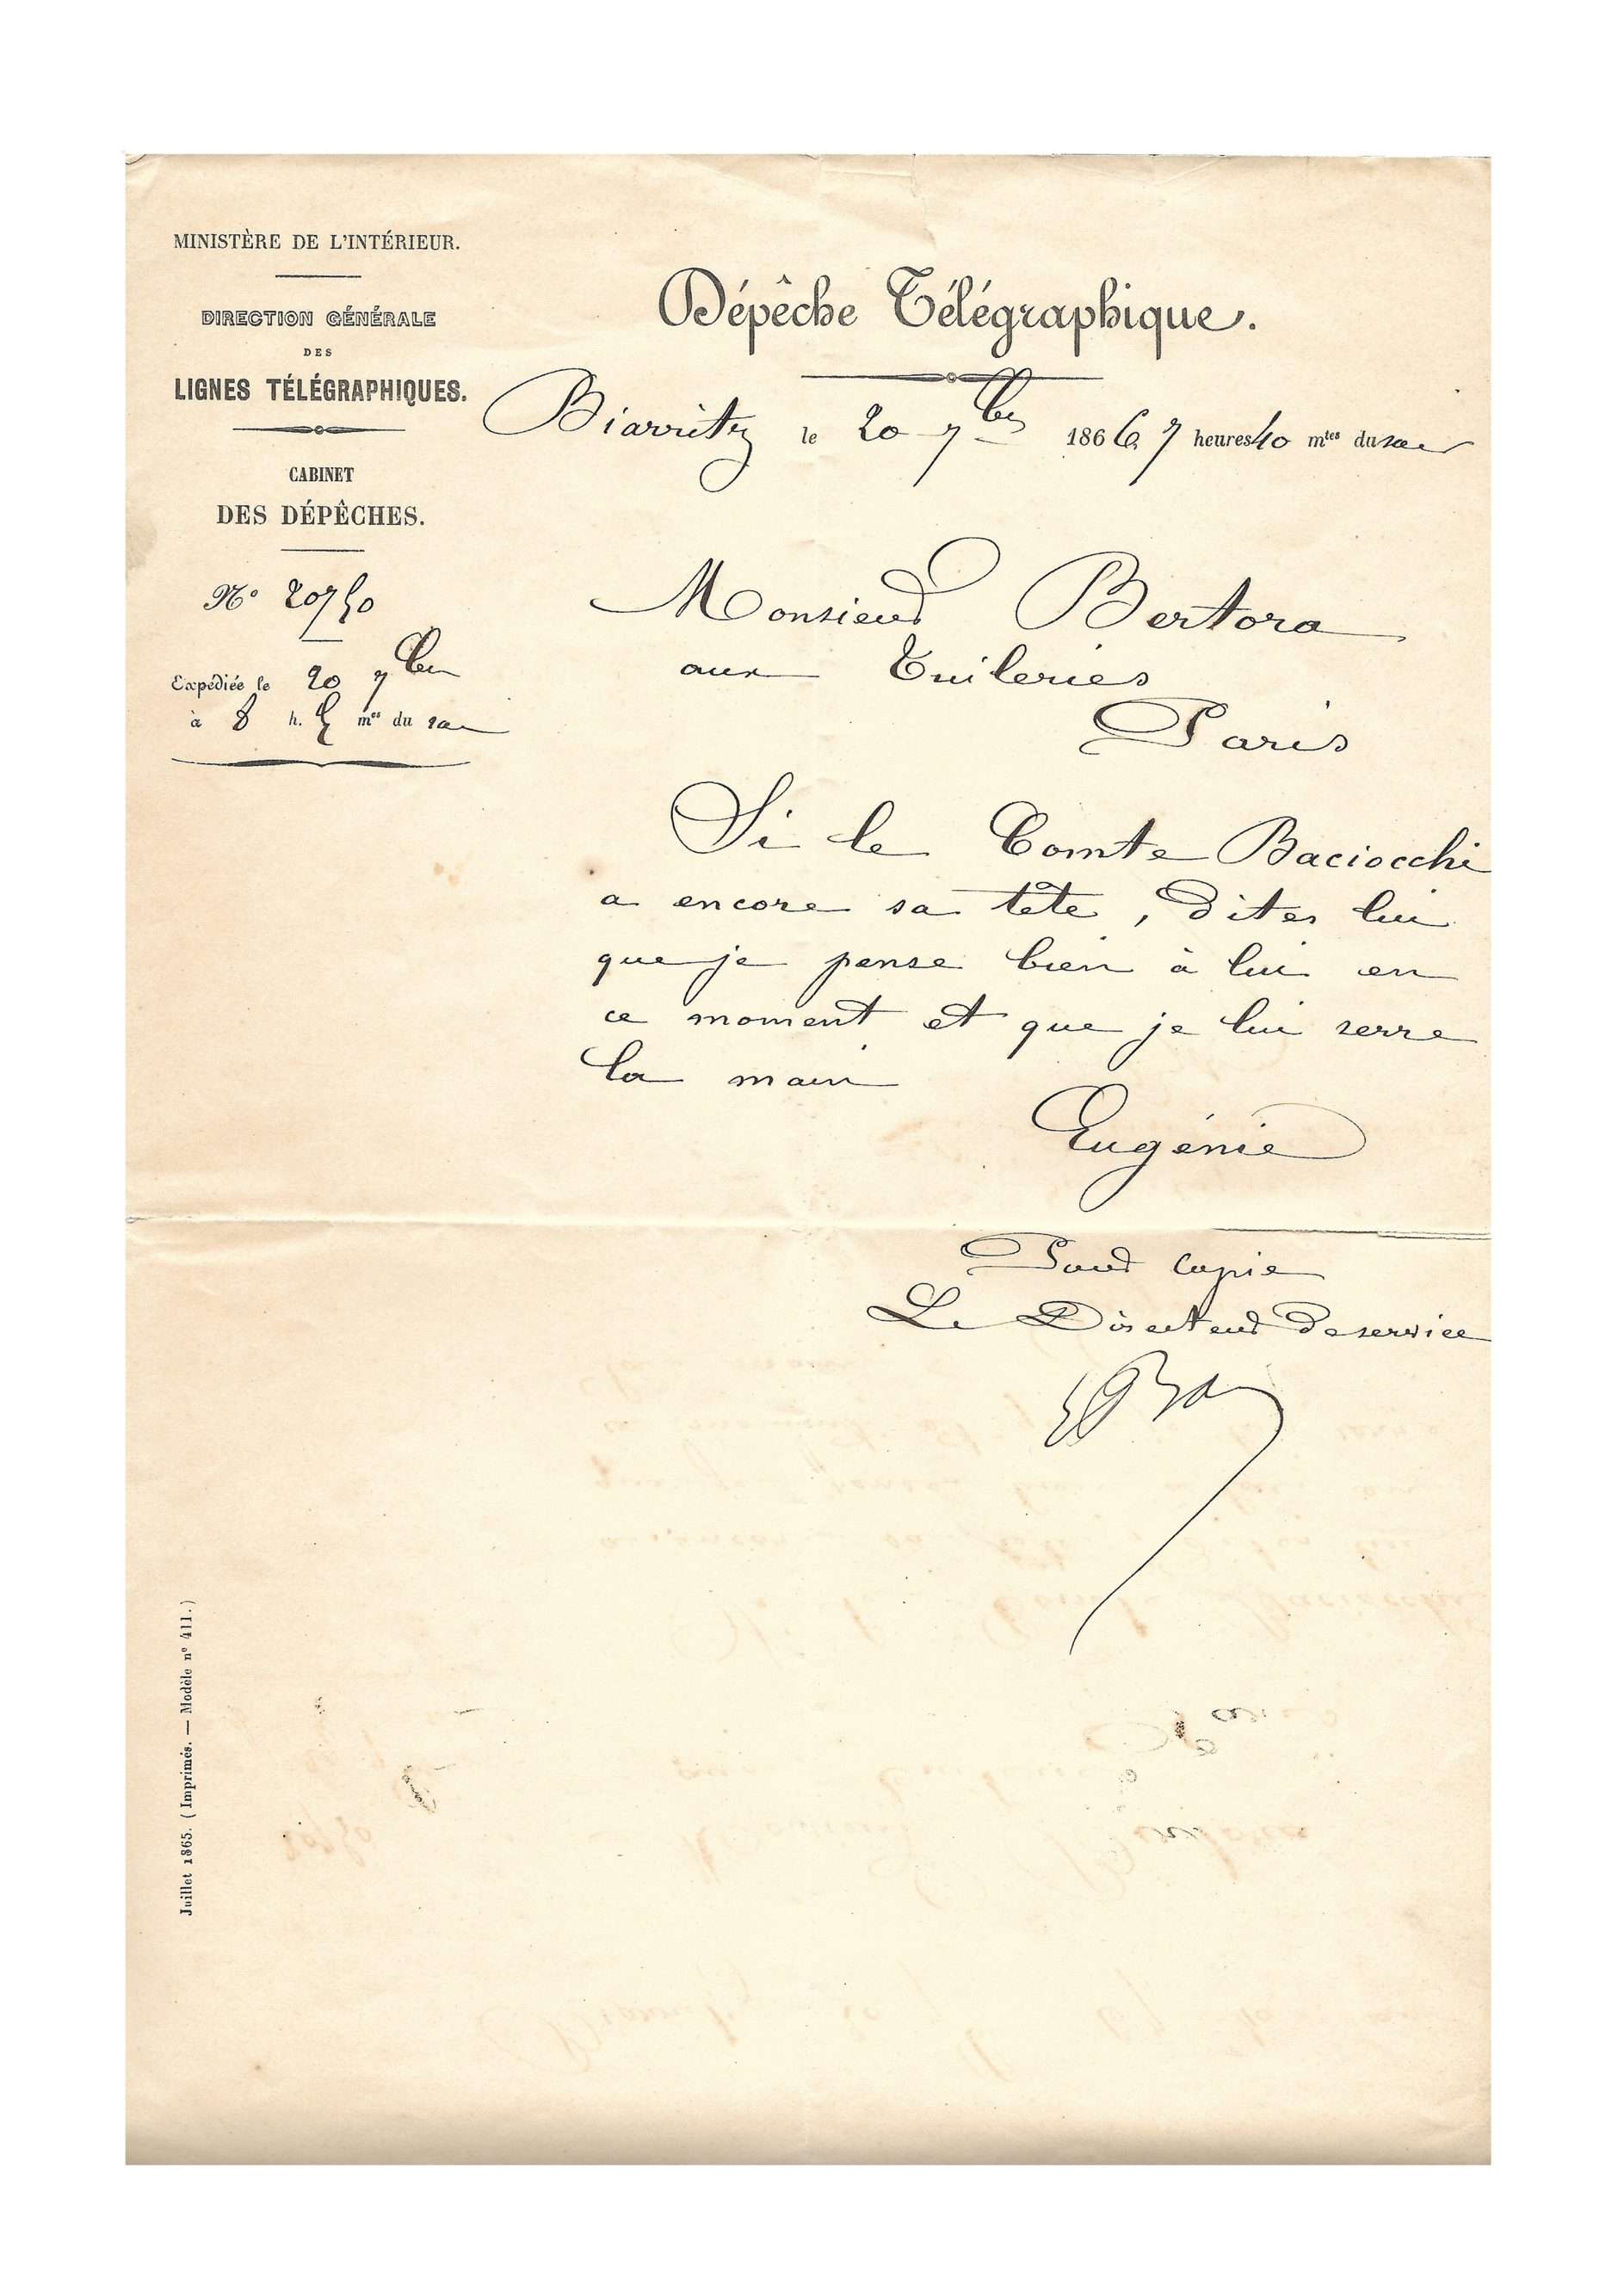 MINISTÈRE DE L'INTÉRIEUR.
DIRECTION GÉNÉRALE
DES
LIGNES TÉLÉGRAPHIQUES.
CABINET
DES DÉPÊCHES.
N° 20750
Expédiée le 20 7bre
à 8 h. 5 mes du soir
Dépêche Télégraphique.
Biarritz le 20 7bre 1866 7 heures 40 mtes du soir
Monsieur Bertora
aux Tuileries
Paris
Si le Comte Baciocchi
a encore sa tête, dites lui
que je pense bien à lui en
ce moment et que je lui serre
la main
Eugénie
Pour copie
Le Directeur de service
Juillet 1865. (Imprimés. — Modèle n° 411.)